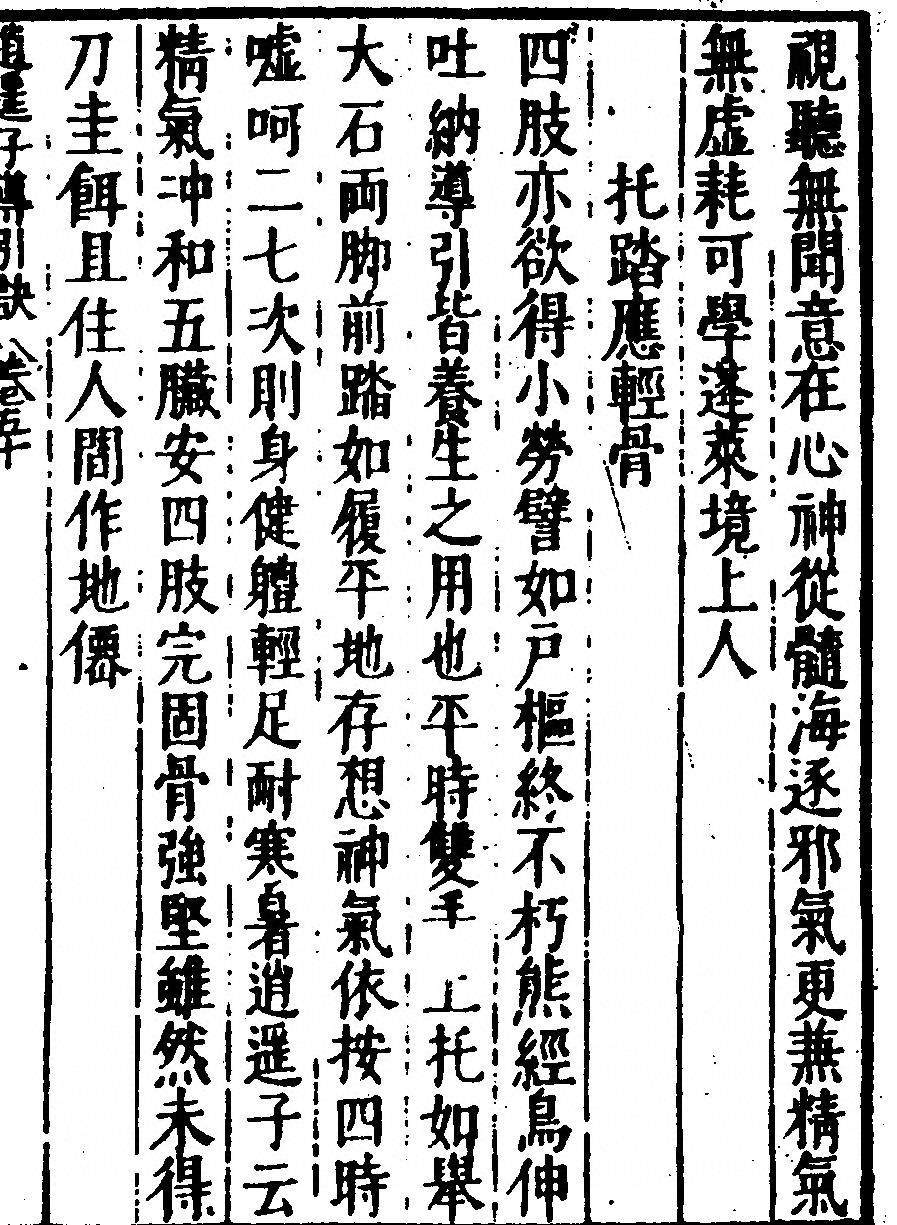 視聽無聞意在心神從髓海逐邪氣更兼精氣
無虛耗可學蓬萊境上人
托踏應輕骨
四肢亦欲得小勞譬如戶樞終不朽熊經鳥伸
吐納導引皆養生之用也平時雙手上托如舉
大石両脚前踏如履平地存想神氣依按四時
噓呵二七次則身健體輕足耐寒暑逍遥子云
精氣冲和五臟安四肢完固骨強堅雖然未得
刀圭餌且住人間作地僊
逍遥子導引訣 卷五十